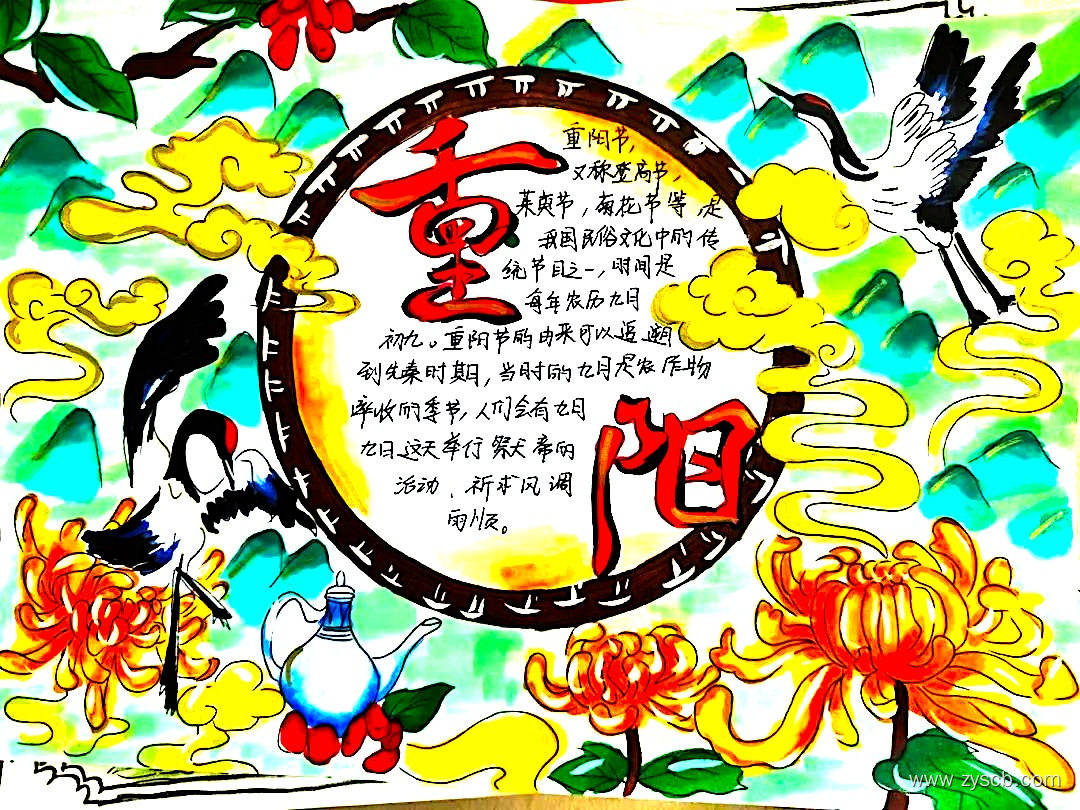 重阳
重阳节,
又称登高节,
茱萸节,菊花节等,是
我国民俗文化中的传
统节目之一,时间是
每年农历九月
初九。重阳节的由来可以追溯
到先秦时期,当时的九月是农作物
丰收的季节,人们会有九月
九日这天举行祭天帝的
活动、祈求风调
雨顺。
www.zyscb.com